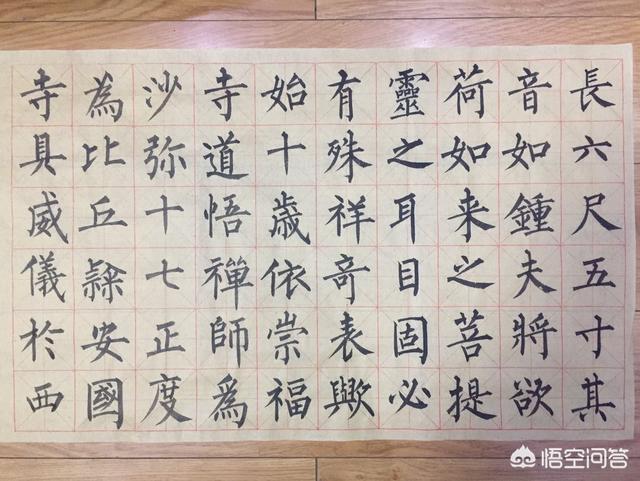 長六尺五寸其
音如鍾夫將欲
荷如来之菩提
靈之耳目固必
有殊祥奇表歟
始十歲依崇福
寺道悟禪師爲
沙弥十七正度
為比丘隸安國
寺具威儀於西
悟空问答